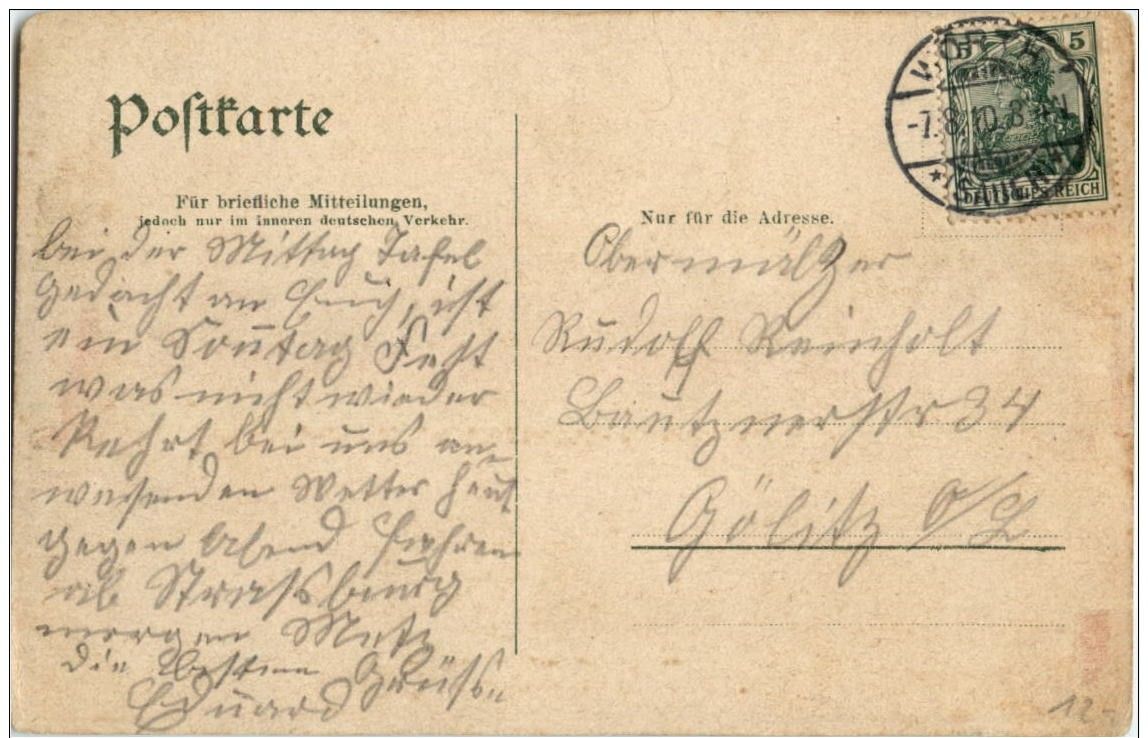 Postkarte
Für briefliche Mitteilungen,
jedoch nur im inneren deutschen Verkehr.
bei der Mittag Tafel
gedacht an Euch, ist
ein Sonntag Fest
was nicht wieder
Kehrt bei uns an
wesenden Wetter heut
gegen Abend fahren
ab Strassburg
morgen Metz
die besten Grüsse
Eduard
WÖRTH
-7.8.10. 8
5
DEUTSCHES REICH
Nur für die Adresse.
Obermälzer
Rudolf Reinholt
Bautznerstr 34
Gölitz O/L
12-